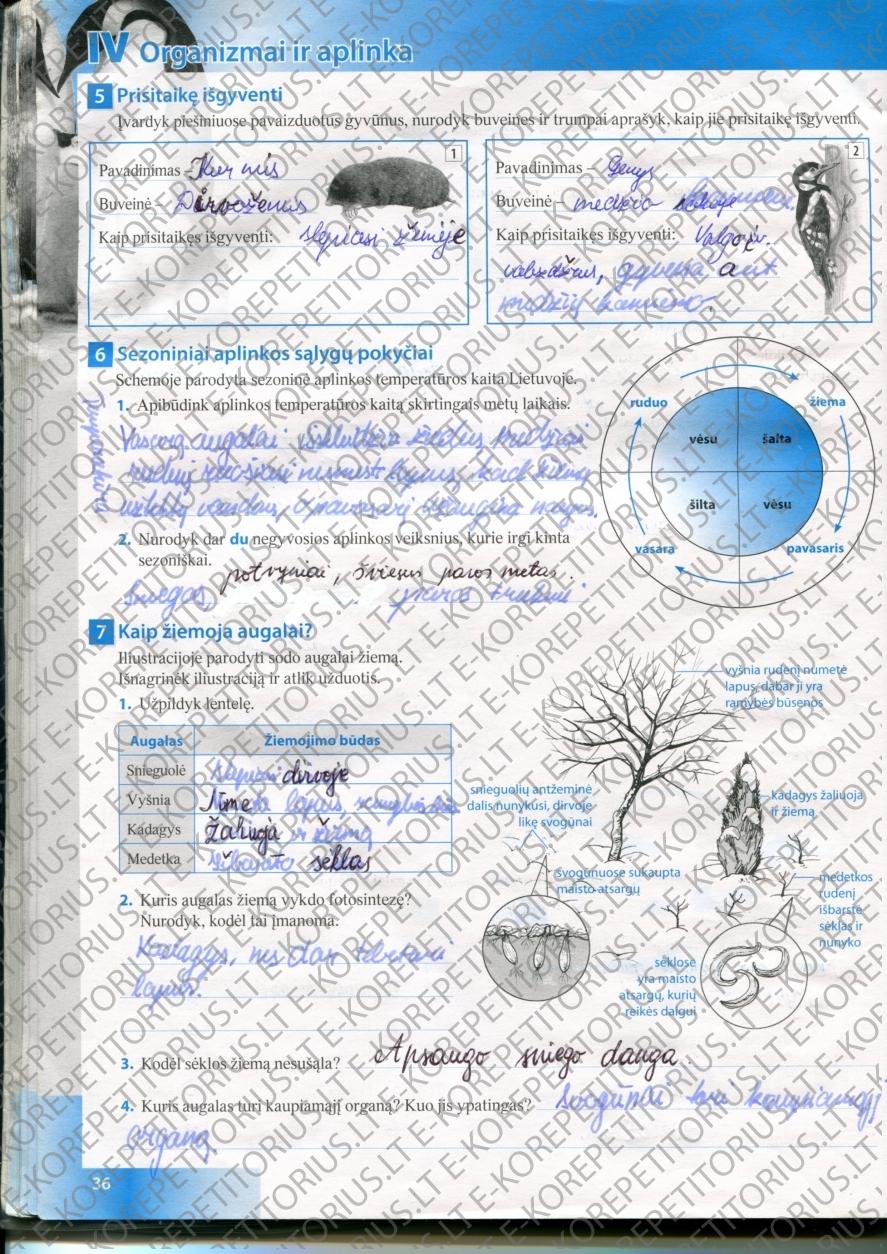 IV Organizmai ir aplinka
5 Prisitaikę išgyventi
Įvardyk piešiniuose pavaizduotus gyvūnus, nurodyk buveines ir trumpai aprašyk, kaip jie prisitaikę išgyventi.
1
Pavadinimas – Kurmis
Buveinė – Dirvožemis
Kaip prisitaikęs išgyventi: slepiasi žemėje
2
Pavadinimas – Genys
Buveinė – medžio
Kaip prisitaikęs išgyventi: Valgo
vabzdžius, gyvena ant
medžių kamieno.
6 Sezoniniai aplinkos sąlygų pokyčiai
Schemoje parodyta sezoninė aplinkos temperatūros kaita Lietuvoje.
1. Apibūdink aplinkos temperatūros kaitą skirtingais metų laikais.
Vasarą augalai
2. Nurodyk dar du negyvosios aplinkos veiksnius, kurie irgi kinta
sezoniškai.
potvyniai, šviesus paros metas.
Sniegas, paros trukmė
ruduo
žiema
vėsu
šalta
šilta
vėsu
vasara
pavasaris
7 Kaip žiemoja augalai?
Iliustracijoje parodyti sodo augalai žiemą.
Išnagrinėk iliustraciją ir atlik užduotis.
1. Užpildyk lentelę.
Augalas Žiemojimo būdas
Snieguolė dirvoje
Vyšnia Numeta lapus, ramybės
Kadagys Žaliuoja ir žiemą
Medetka Išbarsto sėklas
vyšnia rudenį numetė
lapus, dabar ji yra
ramybės būsenos
snieguolių antžeminė
dalis nunykusi, dirvoje
likę svogūnai
kadagys žaliuoja
ir žiemą
svogūnuose sukaupta
maisto atsargų
medetkos
rudenį
išbarstė
sėklas ir
nunyko
sėklose
yra maisto
atsargų, kurių
reikės daigui
2. Kuris augalas žiemą vykdo fotosintezę?
Nurodyk, kodėl tai įmanoma.
Kadagys, nes dar tebeturi
lapus.
3. Kodėl sėklos žiemą nesušąla? Apsaugo sniego danga.
4. Kuris augalas turi kaupiamąjį organą? Kuo jis ypatingas? Svogūnai turi kaupiamąjį
organą
36
E-KOREPETITORIUS.LT